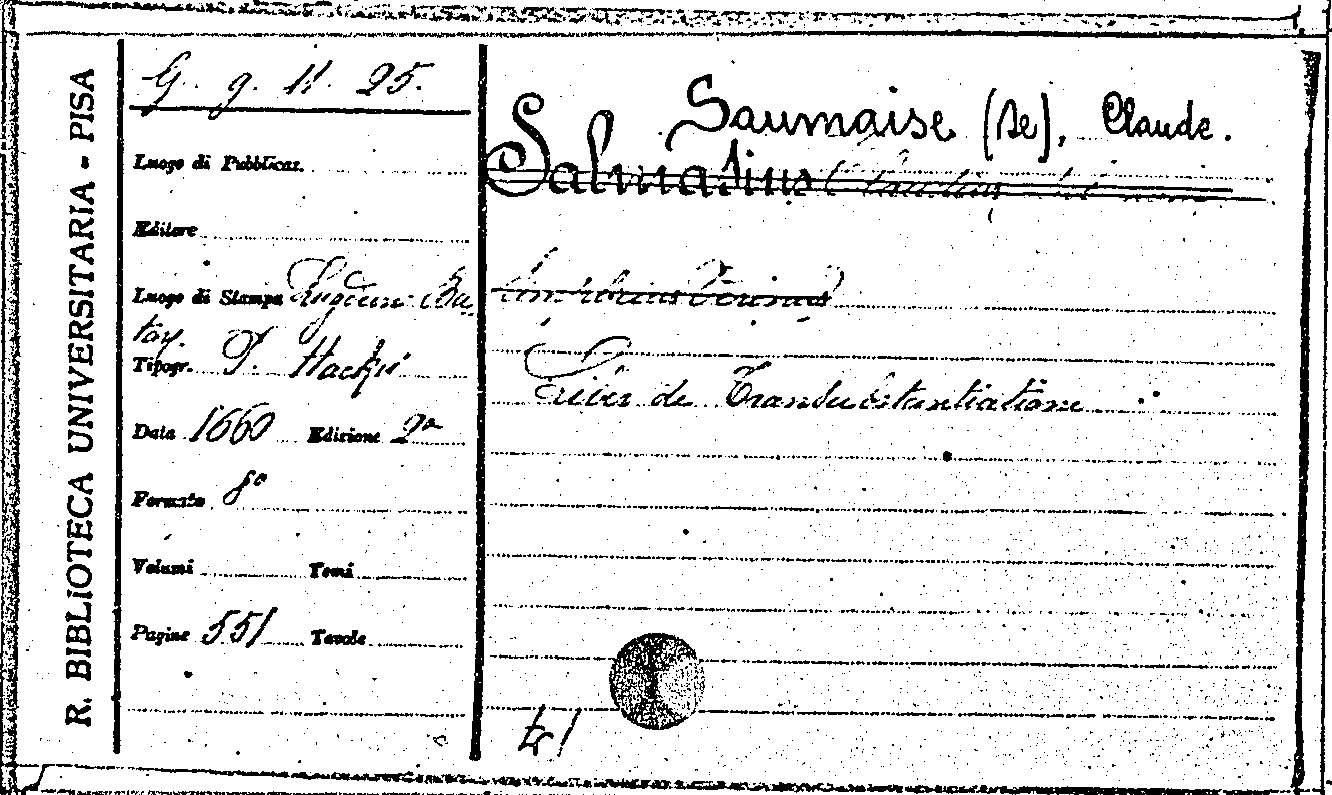 R. BIBLIOTECA UNIVERSITARIA - PISA
G. g. 11. 25.
Luogo di Pubblicaz.
Editore
Luogo di Stampa Lugduni Ba
tav.
Tipogr. P. Hackii
Data 1660 Edizione 2ª
Formato 8º
Volumi Tomi
Pagine 551 Tavole
Saumaise (de), Claude.
Salmasius Claudius
Liber de Transubstantiatione